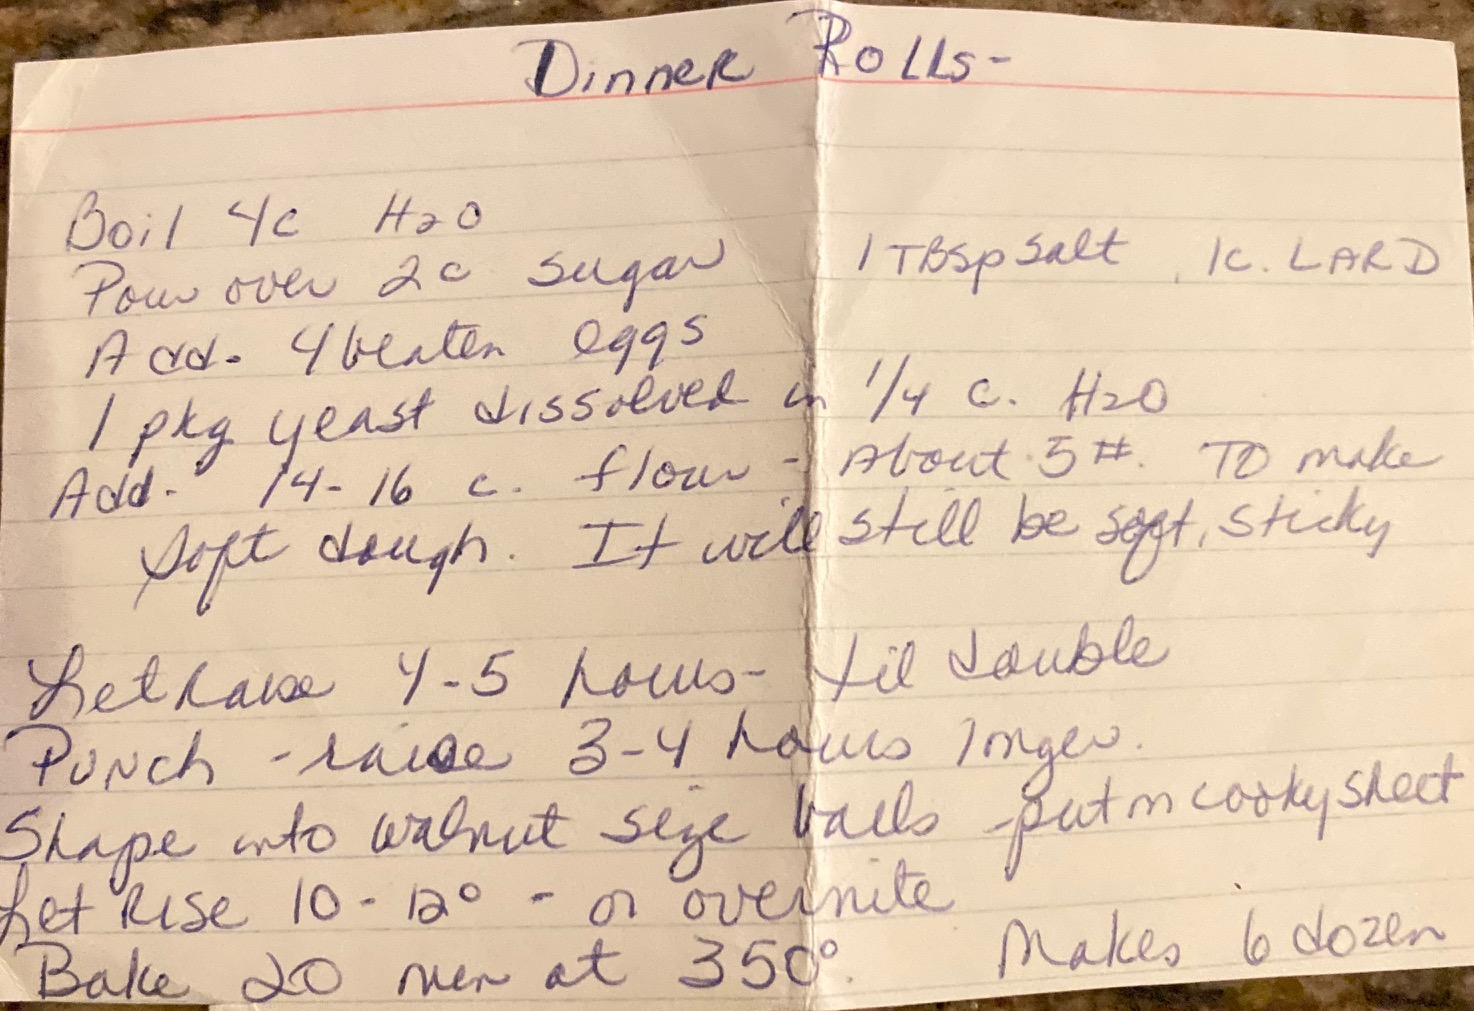 Dinner Rolls-
Boil 4c H2O
Pour over 2c sugar 1 TBSp Salt, 1c. LARD
Add- 4 beaten eggs
1 pkg yeast dissolved in 1/4 c. H2O
Add- 14-16 c. flour - About 5#. TO make
soft dough. It will still be soft, sticky
Let raise 4-5 hours- til double
Punch - raise 3-4 hours longer.
Shape into walnut size balls - put on cooky sheet
Let Rise 10-12° - or overnite
Bake 20 min at 350°. Makes 6 dozen